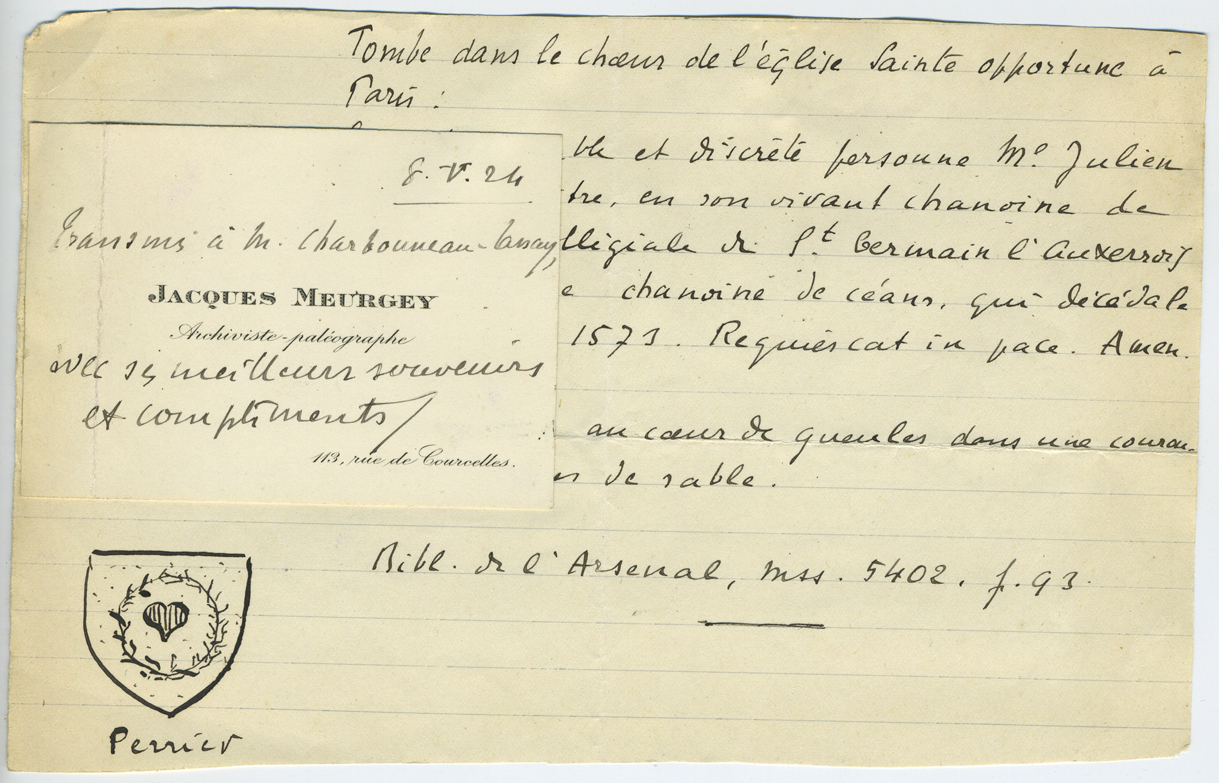 Tombe dans le chœur de l'église Sainte opportune à
Paris :
ble et discrète personne Me Julien
tre, en son vivant chanoine de
llégiale de St Germain l'Auxerrois
e chanoine de céans, qui décéda le
1573. Requiescat in pace. Amen.
au cœur de gueules dans une couron-
de sable.
Bibl. de l'Arsenal, mss. 5402. f. 93.
Perrier
8. V. 24
transmis à M. Charbonneau-Lassay,
JACQUES MEURGEY
Archiviste-paléographe
avec ses meilleurs souvenirs
et compliments
113, rue de Courcelles.